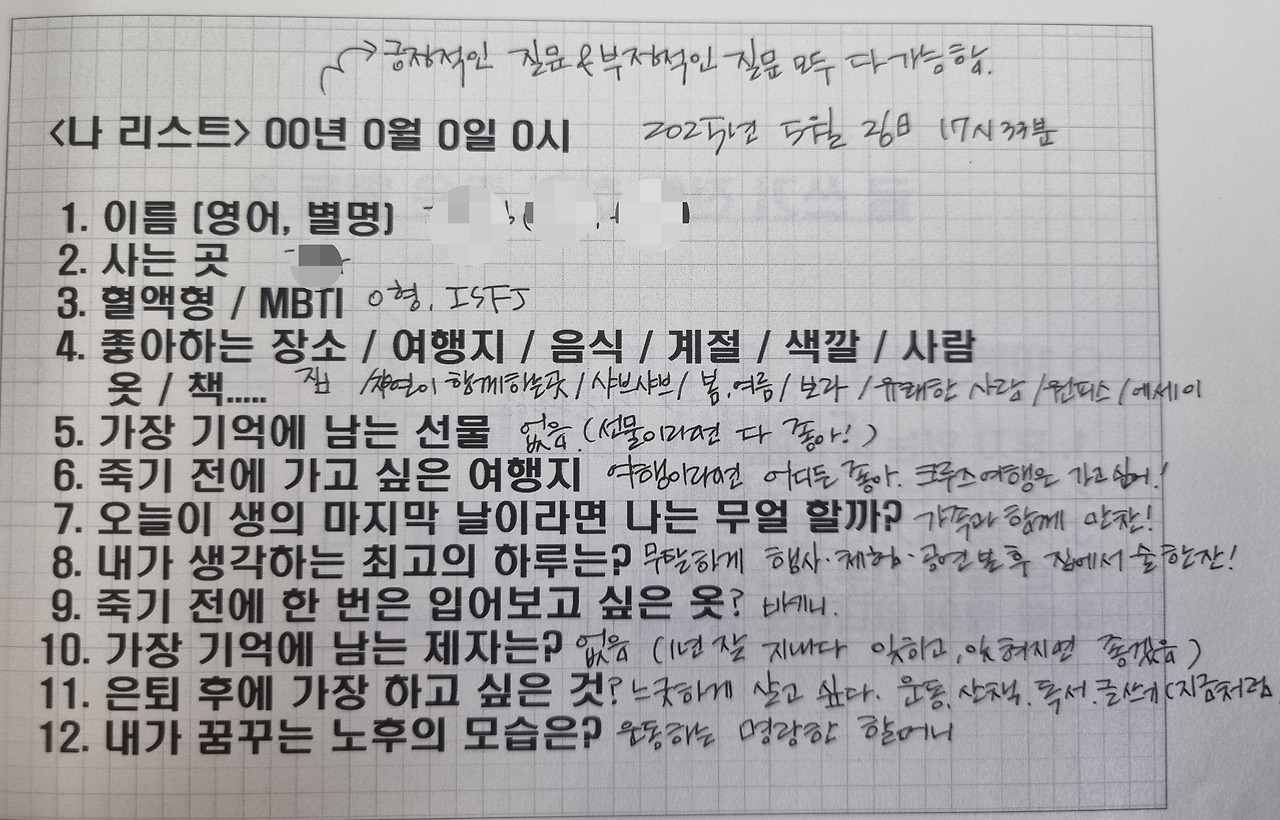 긍정적인 질문&부정적인 질문 모두 다 가능함.
<나 리스트> 00년 0월 0일 0시 2025년 5월 26日 17시 37분
1. 이름 (영어, 별명)
2. 사는 곳
3. 혈액형 / MBTI O형. ISFJ
4. 좋아하는 장소 / 여행지 / 음식 / 계절 / 색깔 / 사람
옷 / 책..... 집 /자연이 함께하는곳/샤브샤브/ 봄.여름/보라 /유쾌한 사람/원피스/에세이
5. 가장 기억에 남는 선물 없음 (선물이라면 다 좋아!)
6. 죽기 전에 가고 싶은 여행지 여행이라면 어디든 좋아. 크루즈여행은 가고싶어!
7. 오늘이 생의 마지막 날이라면 나는 무얼 할까? 가족과 함께 만찬!
8. 내가 생각하는 최고의 하루는? 무탈하게 행사·체험·공연 본 후 집에서 술한잔!
9. 죽기 전에 한 번은 입어보고 싶은 옷? 비키니.
10. 가장 기억에 남는 제자는? 없음 (1년 잘 지내다 잊하고,잊혀지면 좋겠음)
11. 은퇴 후에 가장 하고 싶은 것? 느긋하게 살고 싶다. 운동.산책.독서.글쓰기(지금처럼
12. 내가 꿈꾸는 노후의 모습은? 운동하는 명랑한 할머니